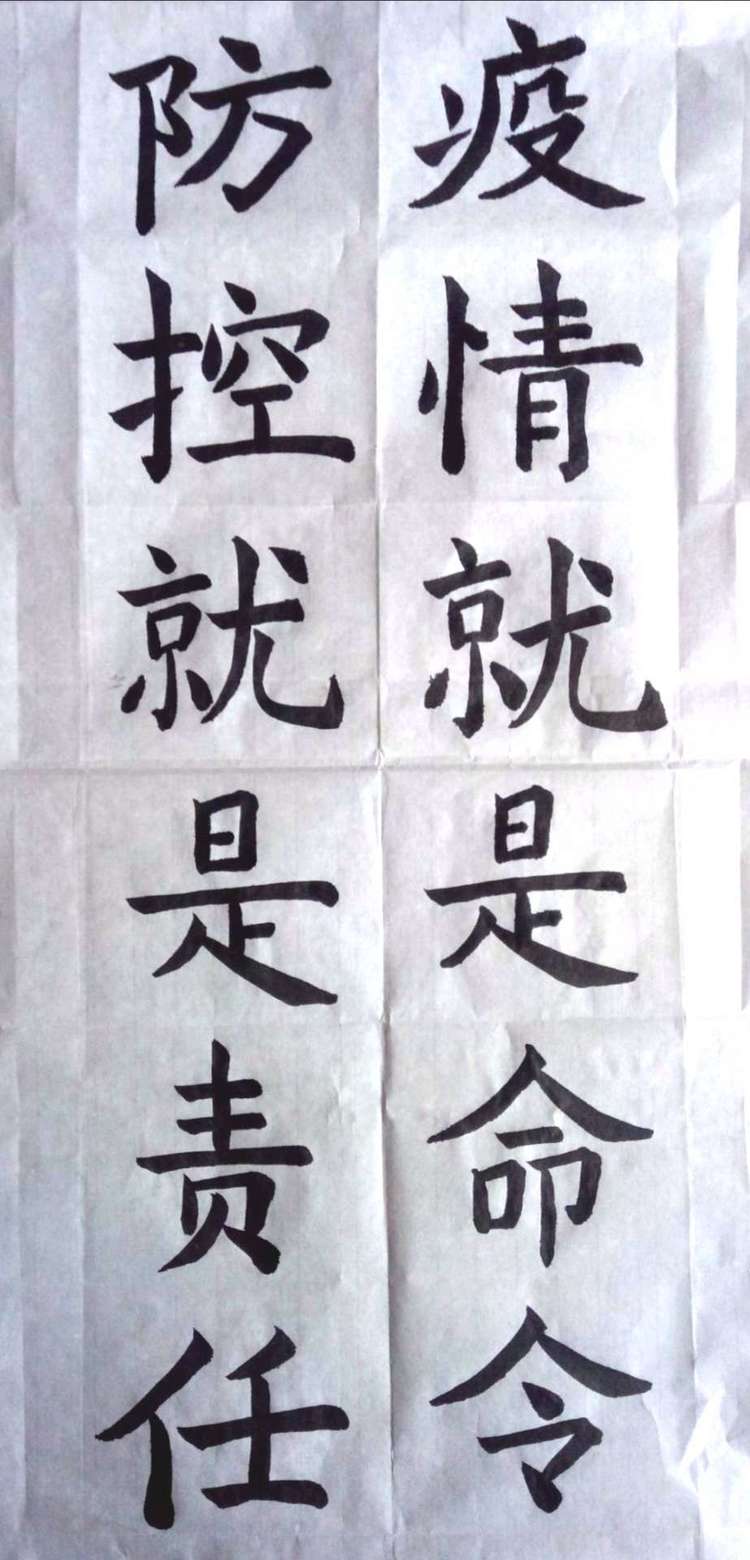 疫情就是命令
防控就是责任